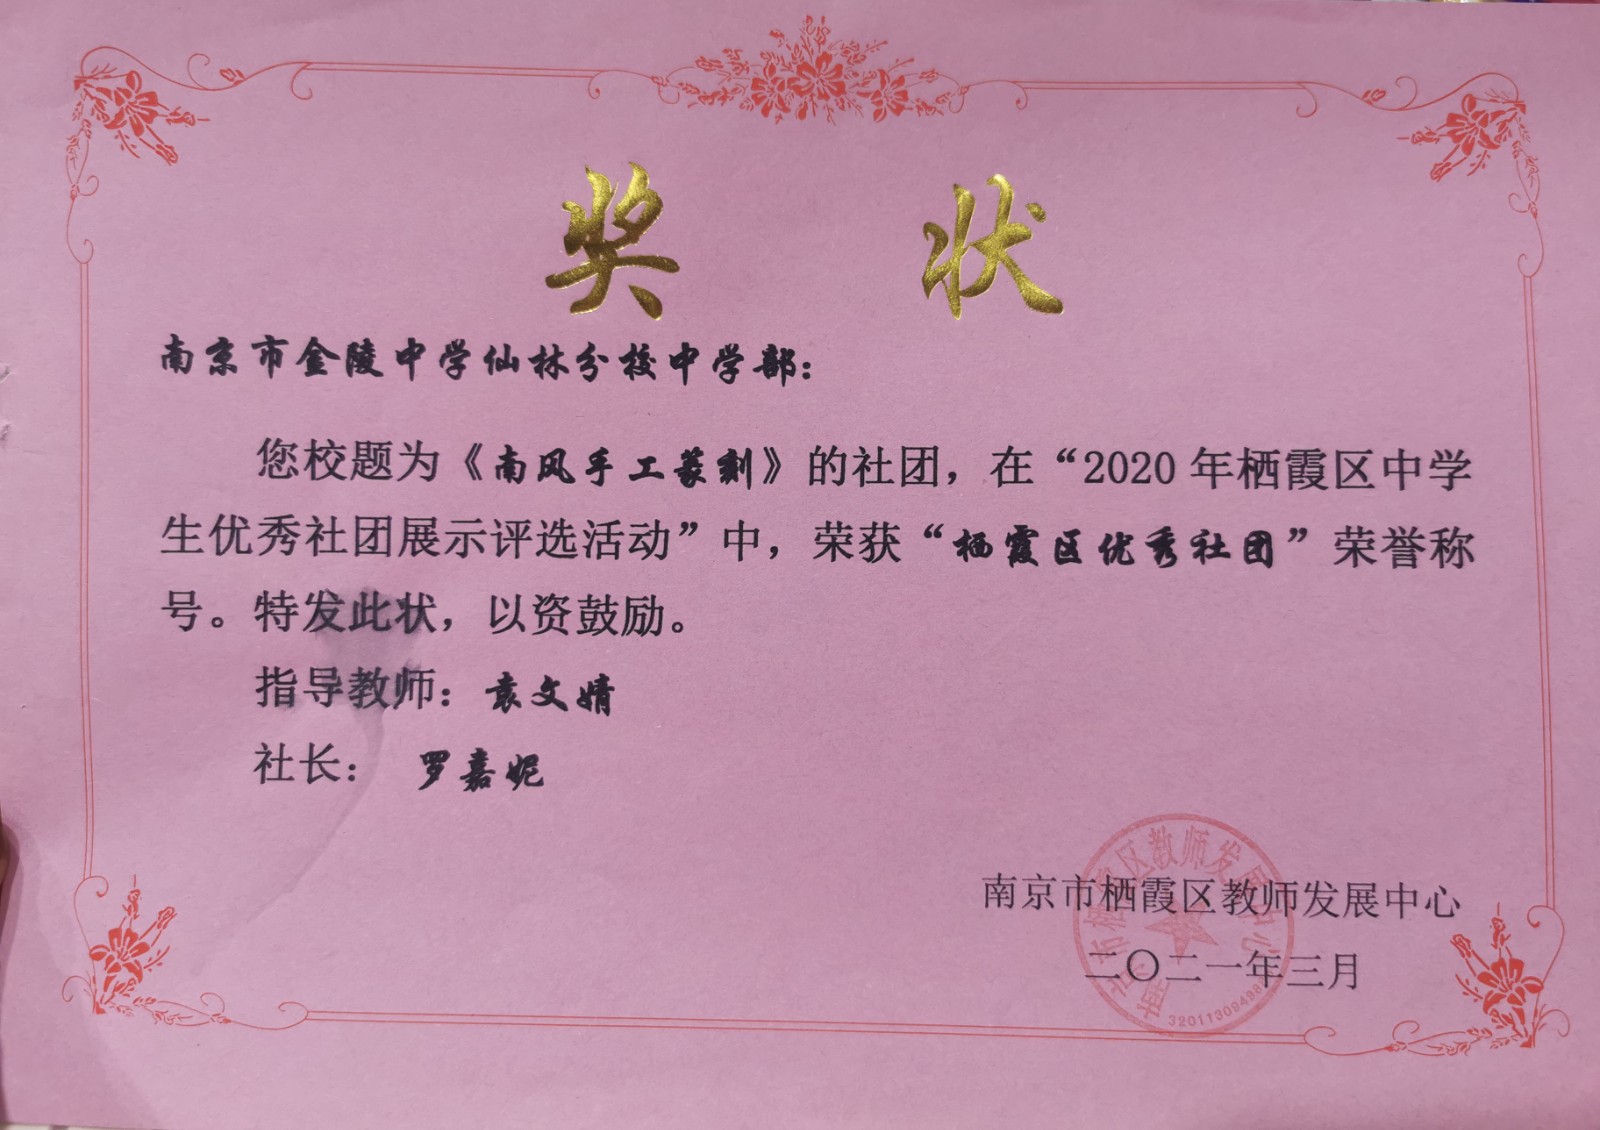 奖状
南京市金陵中学仙林分校中学部：
您校题为《南风手工篆刻》的社团，在“2020年栖霞区中学
生优秀社团展示评选活动”中，荣获“栖霞区优秀社团”荣誉称
号。特发此状，以资鼓励。
指导教师：袁文婧
社长： 罗嘉妮
南京市栖霞区教师发展中心
二〇二一年三月